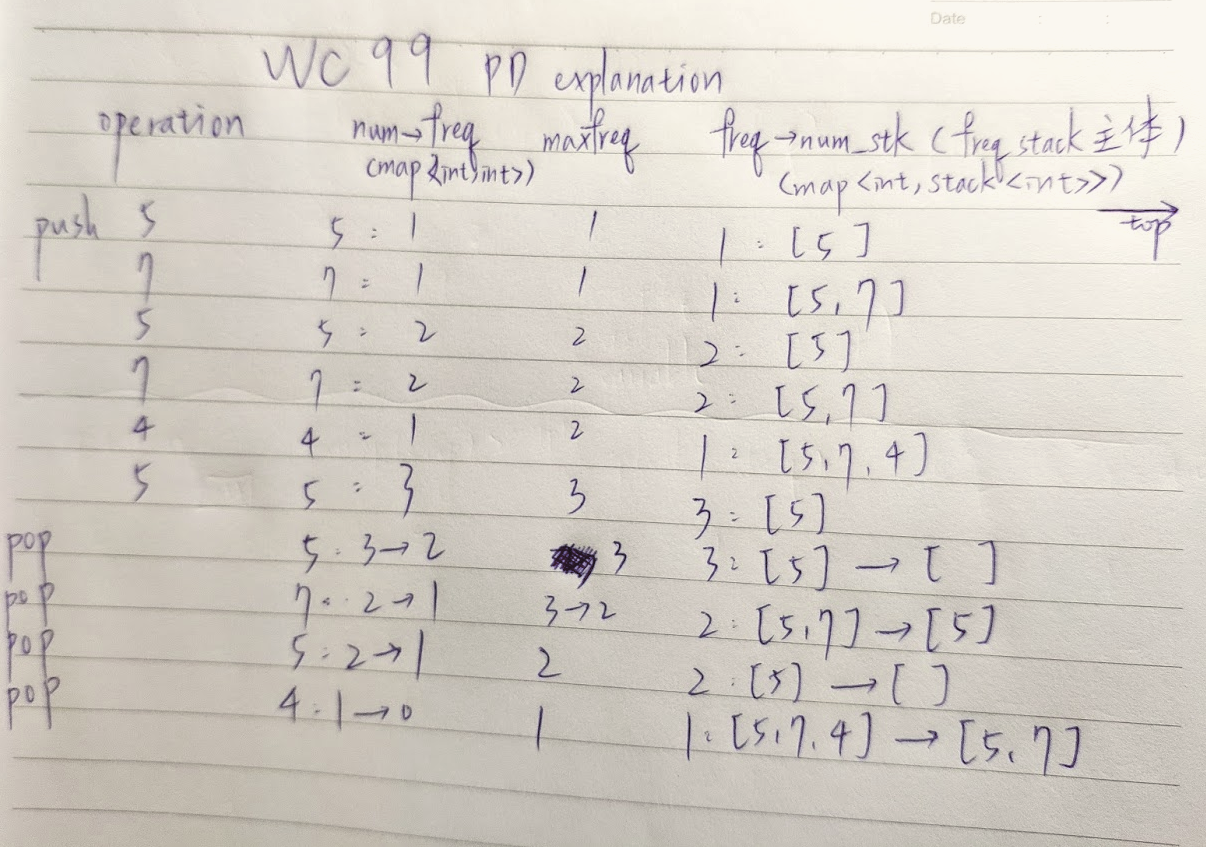 Date : :
WC 99 PD explanation
operation num→freq maxfreq freq→num_stk (freq stack 主体)
(map<int,int>) (map<int, stack<int>>)
push 5 5 : 1 1 1 : [5] top
7 7 : 1 1 1 : [5, 7]
5 5 : 2 2 2 : [5]
7 7 : 2 2 2 : [5, 7]
4 4 : 1 2 1 : [5, 7, 4]
5 5 : 3 3 3 : [5]
pop 5 : 3→2 3 3 : [5] → [ ]
pop 7 : 2→1 3→2 2 : [5, 7] → [5]
pop 5 : 2→1 2 2 : [5] → [ ]
pop 4 : 1→0 1 1 : [5, 7, 4] → [5, 7]